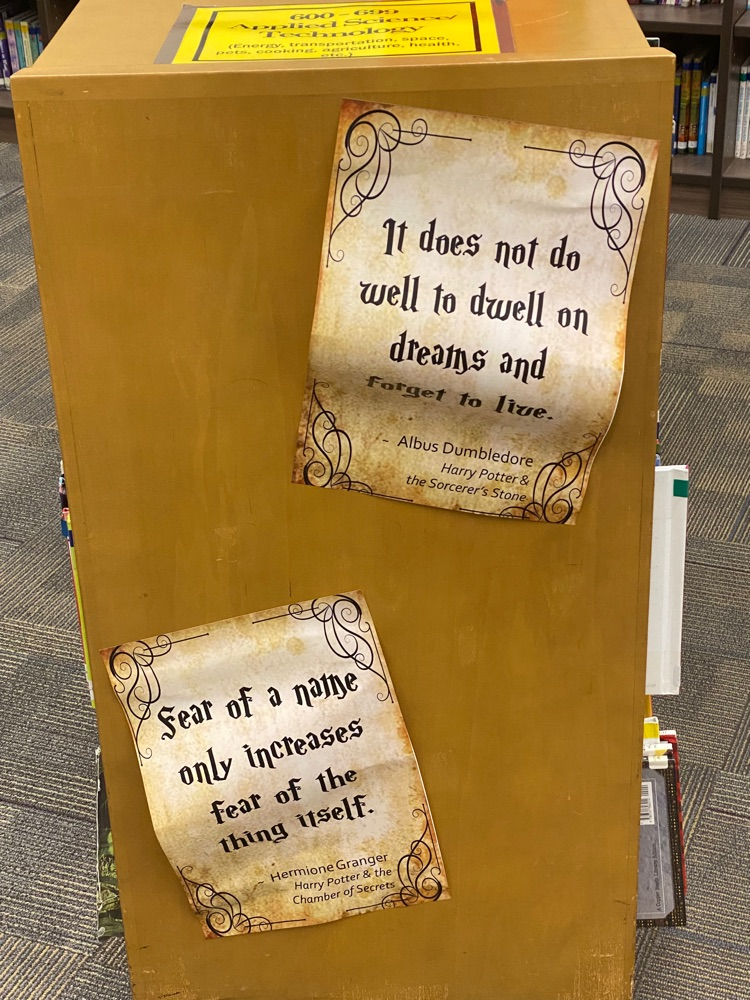 600-699
Applied Science/
Technology
(Energy, transportation, space,
pets, cooking, agriculture, health,
etc.)
It does not do
well to dwell on
dreams and
forget to live.
- Albus Dumbledore
Harry Potter &
the Sorcerer's Stone
Fear of a name
only increases
fear of the
thing itself.
- Hermione Granger
Harry Potter & the
Chamber of Secrets